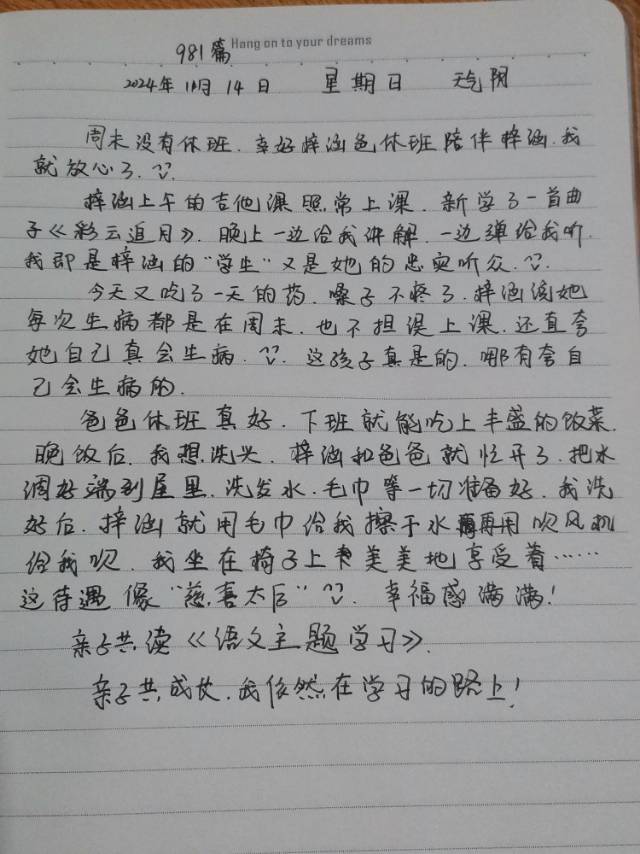 981篇 Hang on to your dreams
2024年 11月 14日 星期日 天气阴
周末没有休班.幸好梓涵爸休班陪伴梓涵.我
就放心了.
梓涵上午的吉他课照常上课.新学了一首曲
子《彩云追月》.晚上一边给我讲解.一边弹给我听.
我即是梓涵的"学生"又是她的忠实听众.
今天又吃了一天的药.嗓子不疼了.梓涵说她
每次生病都是在周末.也不担误上课.还直夸
她自己真会生病.这孩子真是的.哪有夸自
己会生病的.
爸爸休班真好.下班就能吃上丰盛的饭菜.
晚饭后.我想洗头.梓涵和爸爸就忙开了.把水
调好端到屋里.洗发水.毛巾等一切准备好.我洗
好后.梓涵就用毛巾给我擦干水再用吹风机
给我吹.我坐在椅子上美美地享受着……
这待遇像"慈喜太后".幸福感满满!
亲子共读《语文主题学习》.
亲子共成长.我依然在学习的路上!